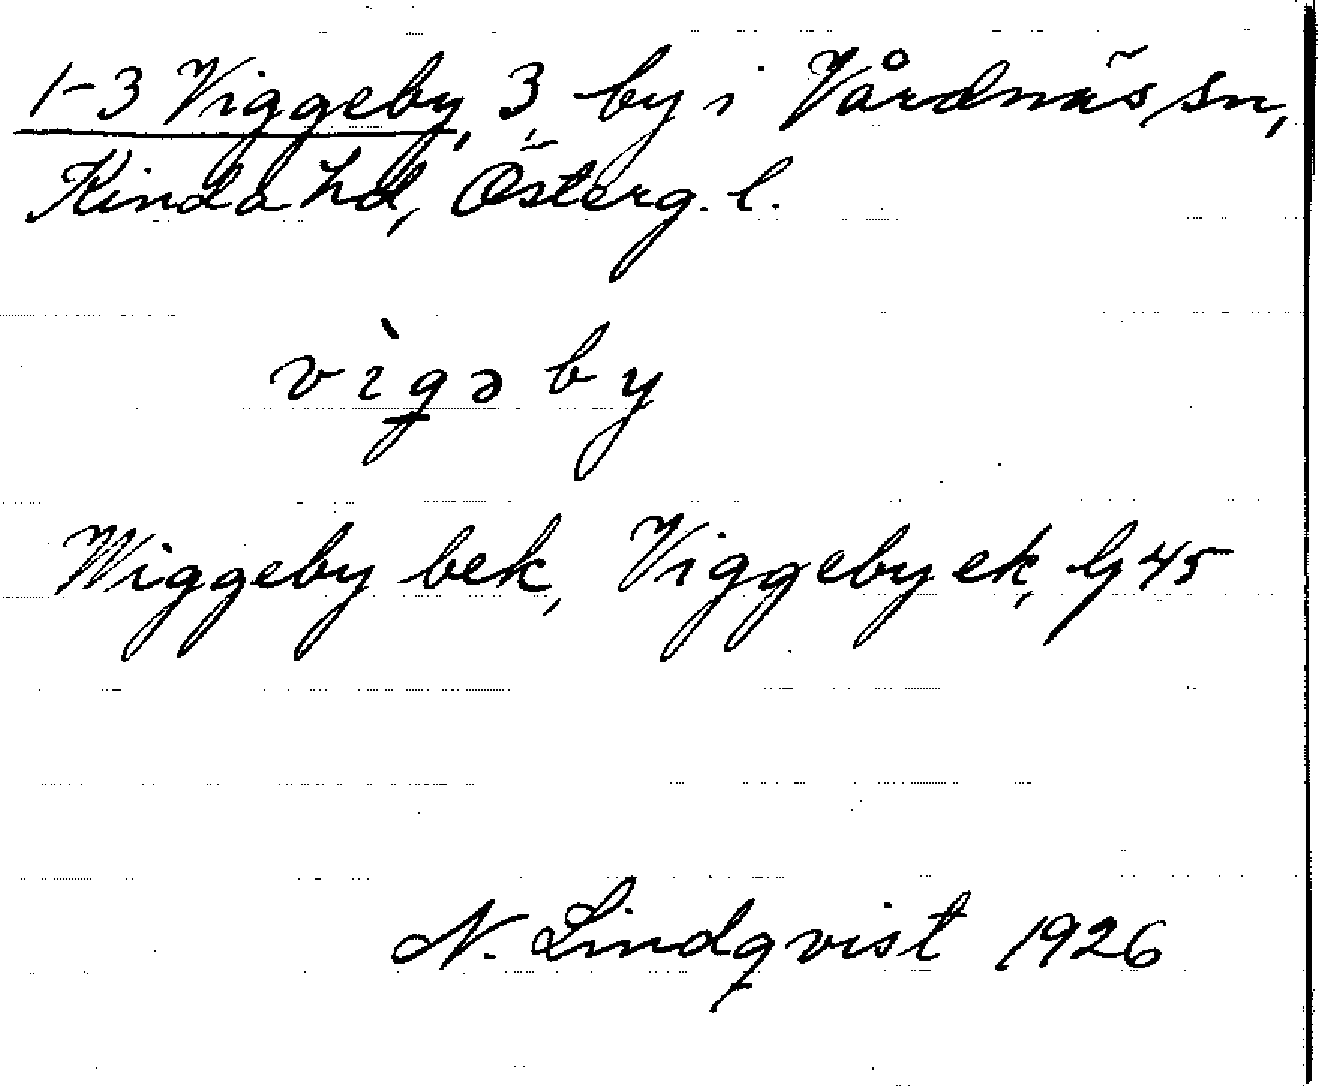 1-3 Viggeby, 3, by i Vårdnäs sn,
Kinda hd, Österg. l.
vìgəby
Wiggeby bek, Viggeby ek, G 45
N. Lindqvist 1926